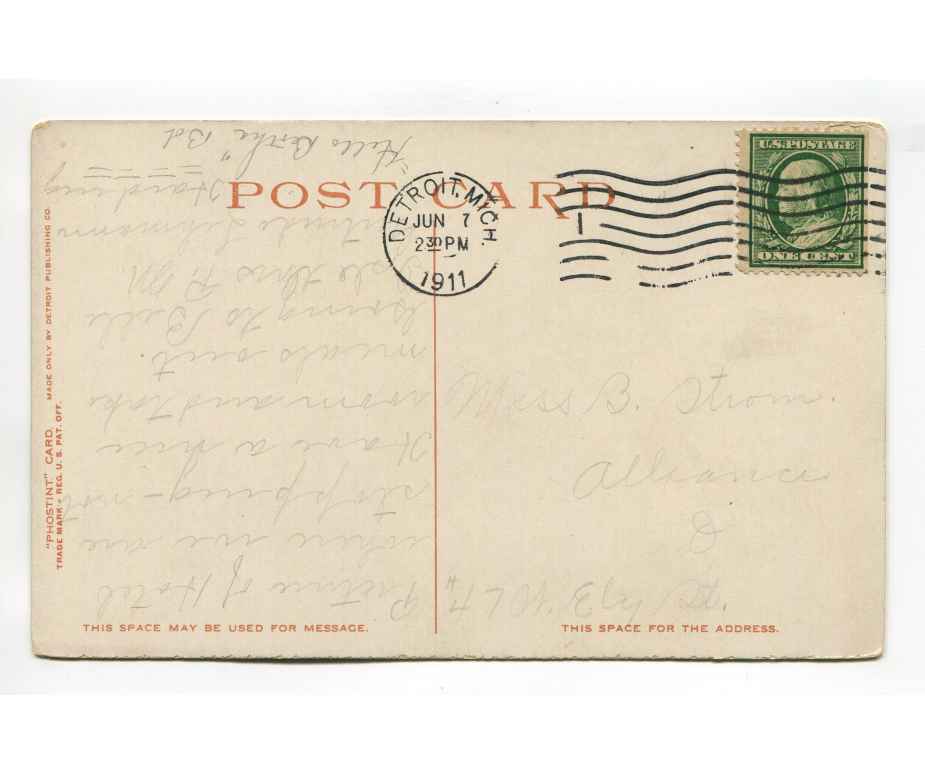 POST CARD
DETROIT, MICH.
JUN 7
2 30 PM
1911
1
U.S. POSTAGE
ONE CENT
"PHOSTINT" CARD
TRADE MARK - REG. U. S. PAT. OFF.
MADE ONLY BY DETROIT PUBLISHING CO.
Picture of Hotel
where we are
stopping - not
Have a nice
room and take
meals out
Going to Belle
Isle this P.M.
"Hello Bertha" Bd
Miss B. Strom.
Alliance
O
THIS SPACE MAY BE USED FOR MESSAGE.
THIS SPACE FOR THE ADDRESS.